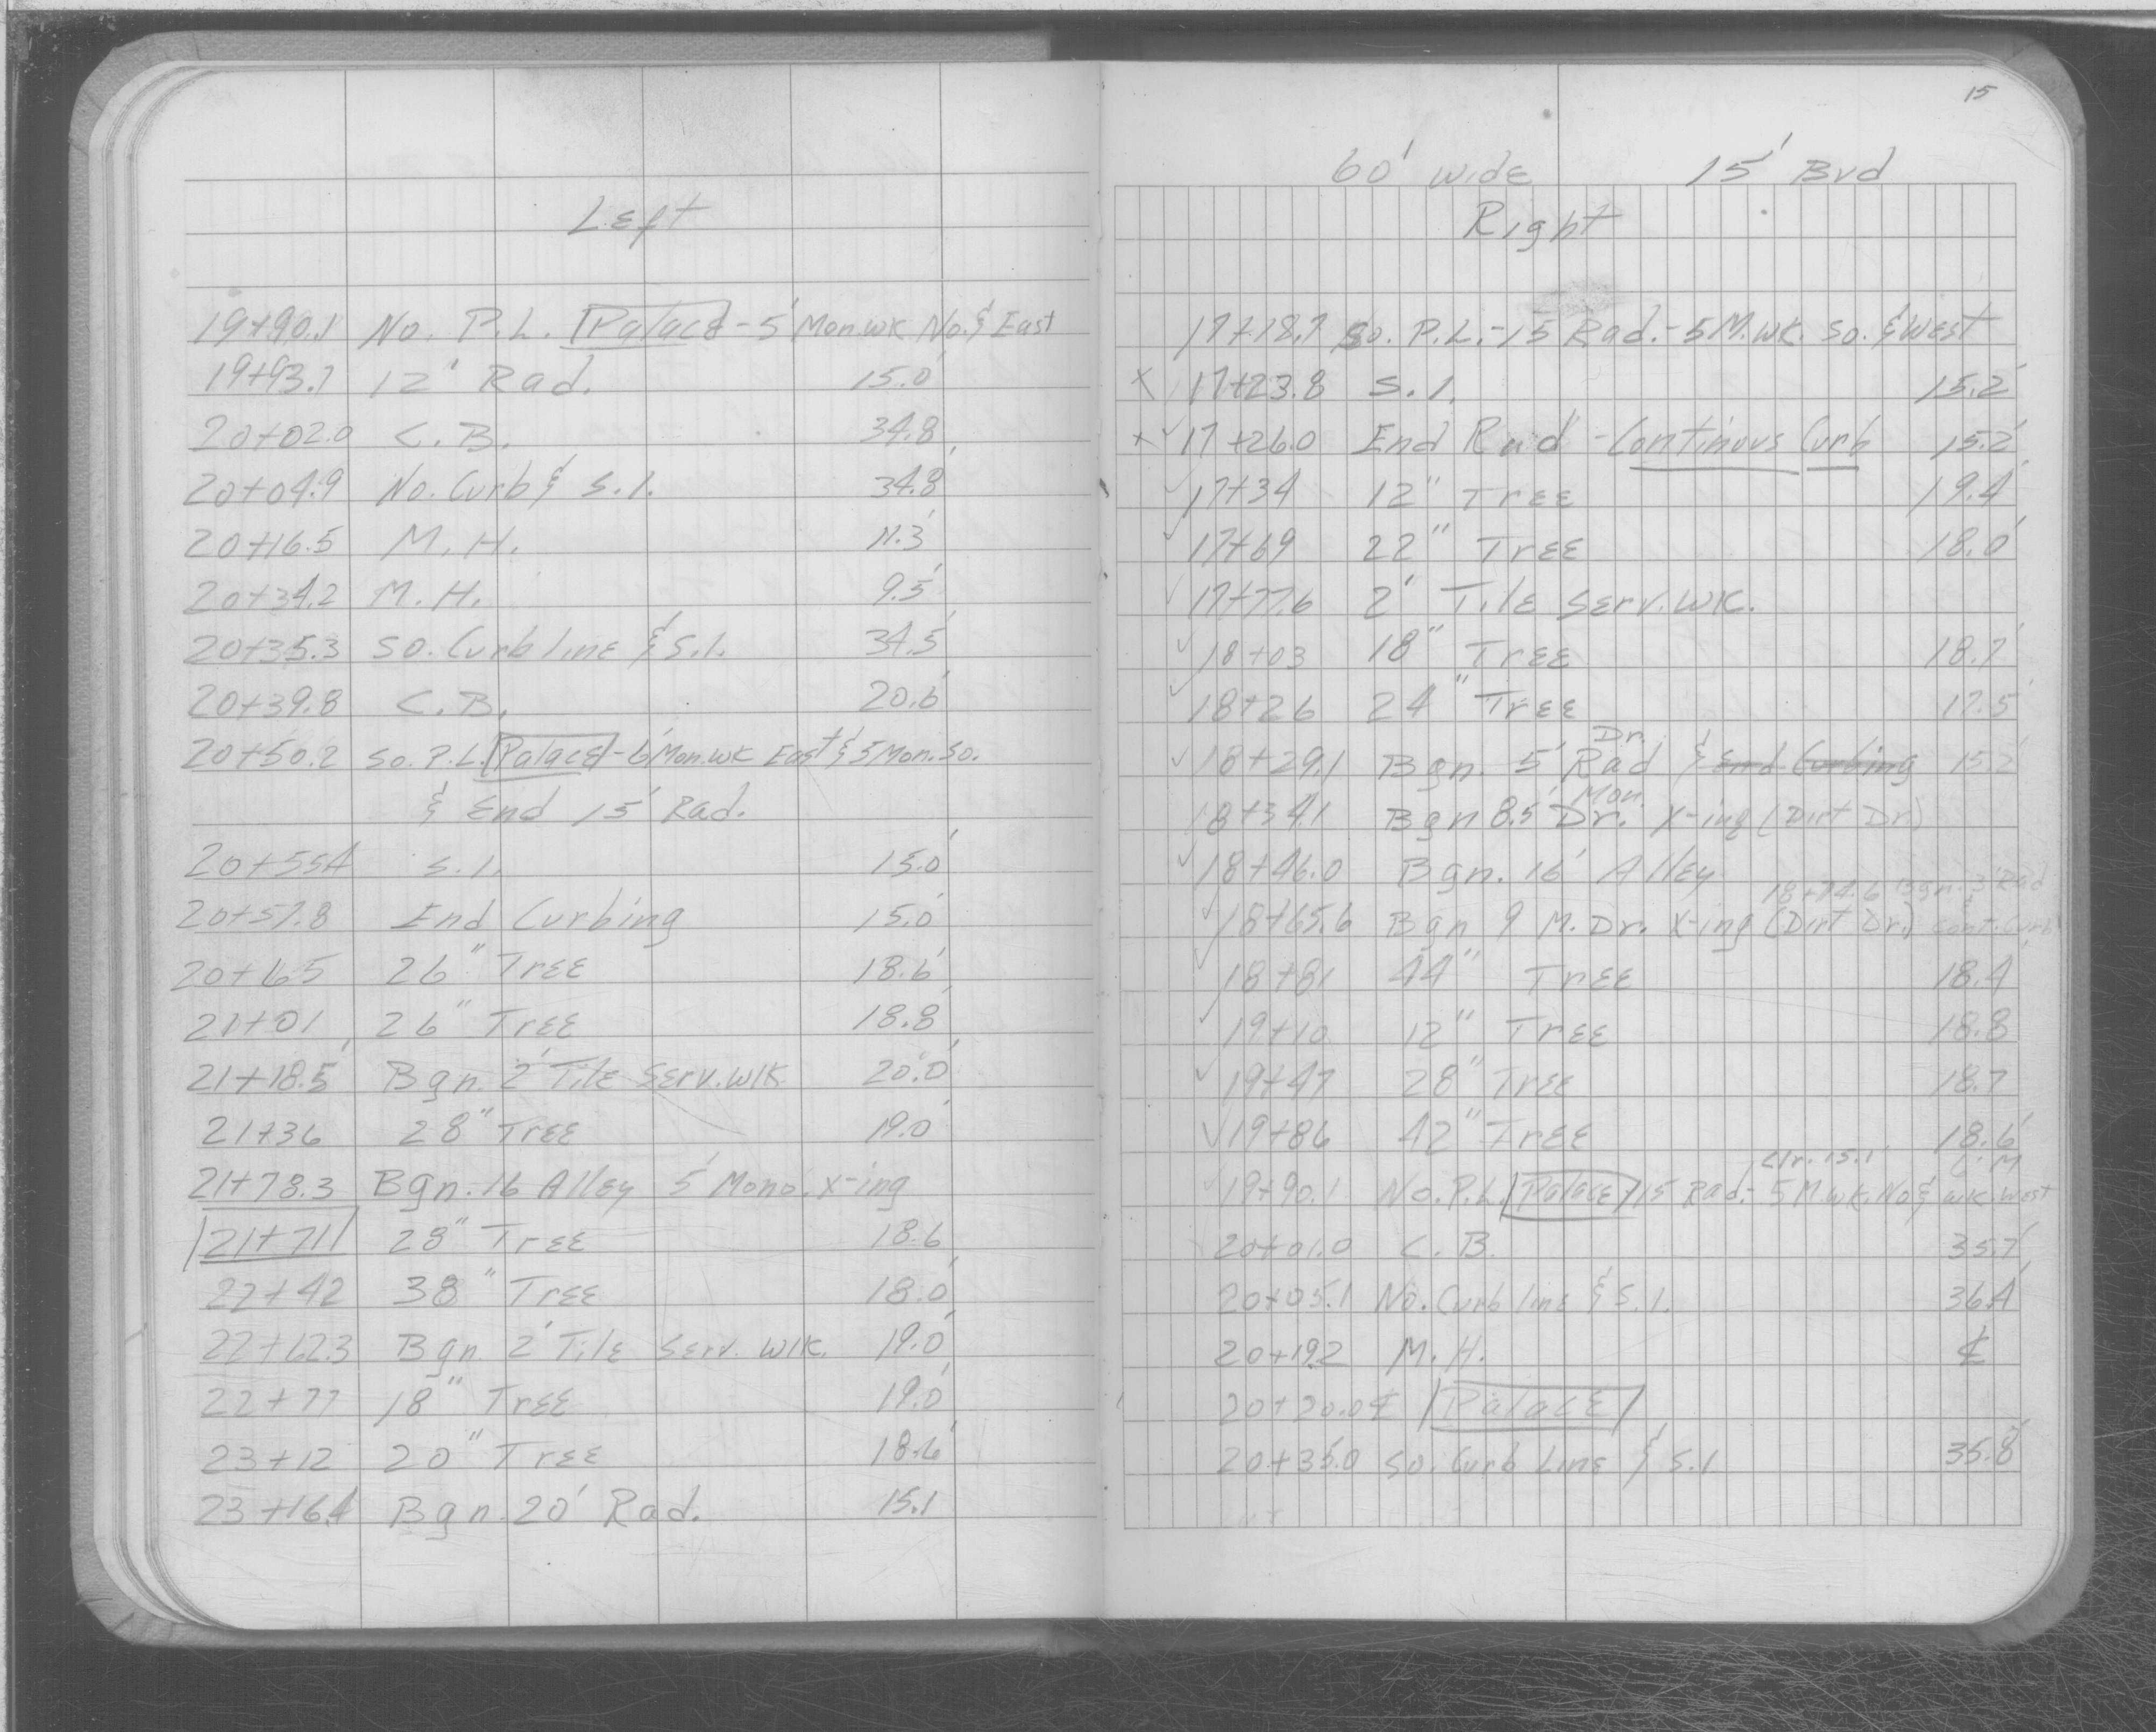 Left
19+90.1 No. P.L. Palace - 5' Mon. wk No. & East
19+93.7 12' Rad. 15.0'
20+02.0 C.B. 34.8'
20+04.9 No. Curb & S.I. 34.8'
20+16.5 M.H. 11.3'
20+34.2 M.H. 9.5'
20+35.3 So. Curb line & S.I. 34.5'
20+39.8 C.B. 20.6'
20+50.2 So. P.L. Palace - 6' Mon. wk East & 5' Mon. So.
& End 15' Rad.
20+55.4 S.I. 15.0'
20+57.8 End Curbing 15.0'
20+65 26" Tree 18.6'
21+01 26" Tree 18.8'
21+18.5 Bgn. 2' Tile Serv. Wlk 20.0'
21+36 28" Tree 19.0'
21+78.3 Bgn. 16' Alley 5' Mono. X-ing
21+71 28" Tree 18.6
22+42 38" Tree 18.0'
22+62.3 Bgn. 2' Tile Serv. Wlk. 19.0'
22+77 18" Tree 19.0'
23+12 20" Tree 18.6'
23+16.4 Bgn. 20' Rad. 15.1
15
60' wide 15' Bvd
Right
17+18.7 So. P.L. - 15' Rad. - 5' M. wk. So. & West
X 17+23.8 S.I. 15.2'
X ✓ 17+26.0 End Rad - Continous Curb 15.2'
✓ 17+34 12" Tree 19.4'
✓ 17+69 22" Tree 18.0'
✓ 17+77.6 2' Tile Serv. WK.
✓ 18+03 18" Tree 18.7'
✓ 18+26 24" Tree 17.5'
✓ 18+29.1 Bgn. 5' Dr. Rad & End Curbing 15.2'
18+34.1 Bgn 8.5' Mon. Dr. X-ing (Dirt Dr.)
✓ 18+46.0 Bgn. 16' Alley
18+74.6 Bgn. 3' Rad
✓ 18+65.6 Bgn 9' M. Dr. X-ing (Dirt Dr.) Cont. Curb
✓ 18+81 44" Tree 18.4'
✓ 19+10 12" Tree 18.8
✓ 19+47 28" Tree 18.7
✓ 19+86 42" Tree 18.6'
Clr. 15.1' 6' M
✓ 19+90.1 No. P.L. Palace 15' Rad. - 5' M. wk. No & wk. West
20+01.0 C.B. 35.7'
20+05.1 No. Curb line & S.I. 36.4'
20+19.2 M.H. ℄
20+20.0 ℄ Palace
20+35.0 So. Curb Line & S.I 35.8'